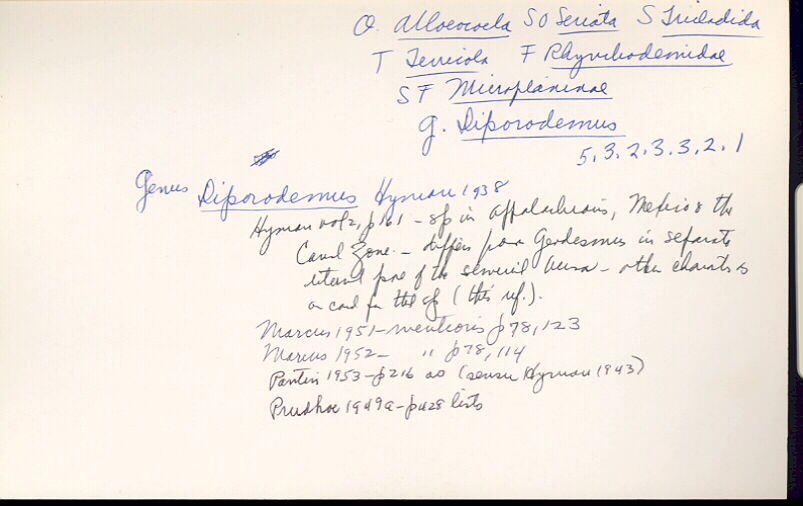 O. Alloeocoela SO Seriata S Tricladida
T Terricola F Rhynchodemidae
SF Microplaninae
g. Diporodemus
5.3.2.3.3.2.1
Genus Diporodemus Hyman 1938
Hyman vol 2, p161 - sp in Appalachians, Mexico & the
Canal Zone. - differs from Geodesmus in separate
external pore of the seminal bursa - other characters
on card for the sp (this ref.).
Marcus 1951 - mentions p78, 123
Marcus 1952 - " p78, 114
Pantin 1953 - p216 as (sensu Hyman 1943)
Prudhoe 1949a - p428 lists